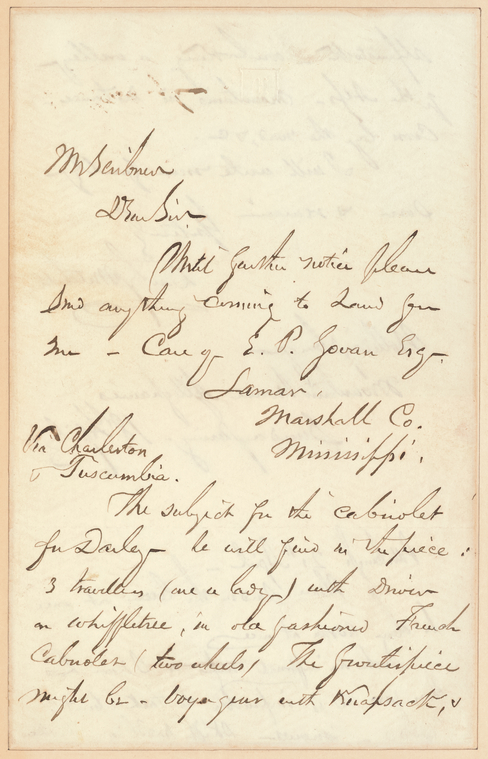 Mr Scribner
Dear Sir
Until further notice please
send anything coming to hand for
me – Care of E. P. Govan Esq.
Lamar,
Marshall Co.
Mississippi.
Via Charleston
& Tuscumbia.
The subject for the cabriolet
for Darley – he will find in the piece:
3 travellers (one a lady) with Driver
on whiffletree, in old fashioned French
Cabriolet (two wheels) The frontispiece
might be – Voyageur with Knapsack, &